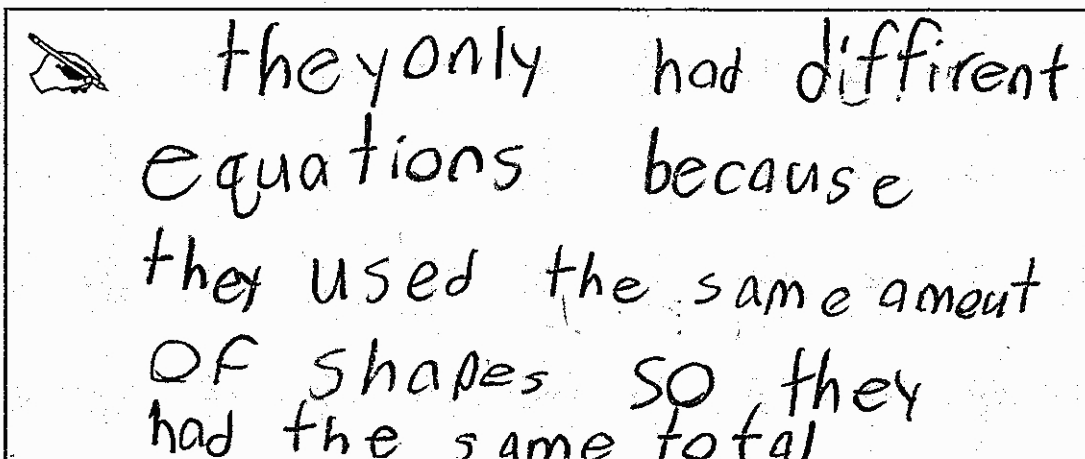 they only had diffirent
equations because
they used the same amout
of shapes so they
had the same total